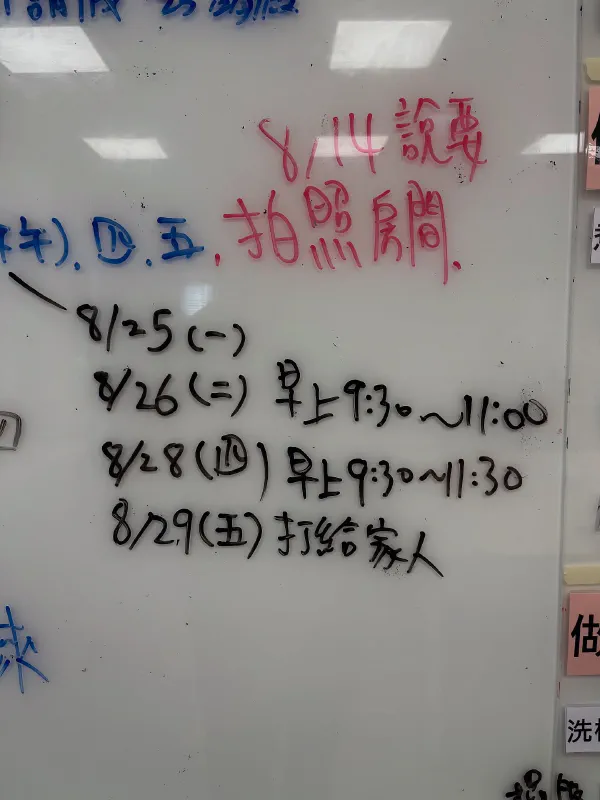 8/14 說要
午). 四. 五. 拍照房間.
8/25 (一)
8/26 (二) 早上9:30～11:00
8/28 (四) 早上9:30～11:30
8/29 (五) 打給家人
做
洗